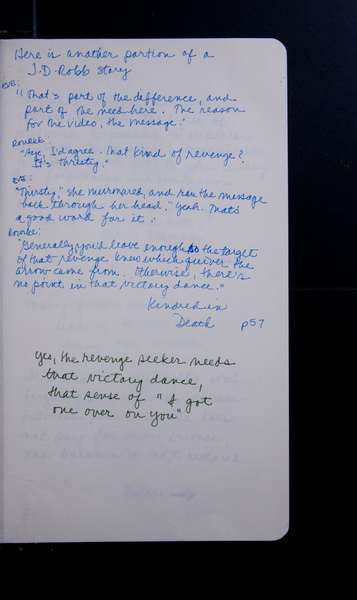 Here is another portion of a
J.D. Robb story
EVE:
"That's part of the difference, and
part of the need here. The reason
for the video, the message."
ROURKE:
"Aye, I'd agree. That kind of revenge?
It's thirsty."
EVE:
"Thirsty," she murmured, and ran the message
back through her head, "Yeah. That's
a good word for it."
ROURKE:
"Generally, you'd leave enough so the target
of that revenge knew which quiver the
arrow came from. Otherwise, there's
no point in that victory dance."
Kindred in
Death p57
Yes, the revenge seeker needs
that victory dance,
that sense of "I got
one over on you"